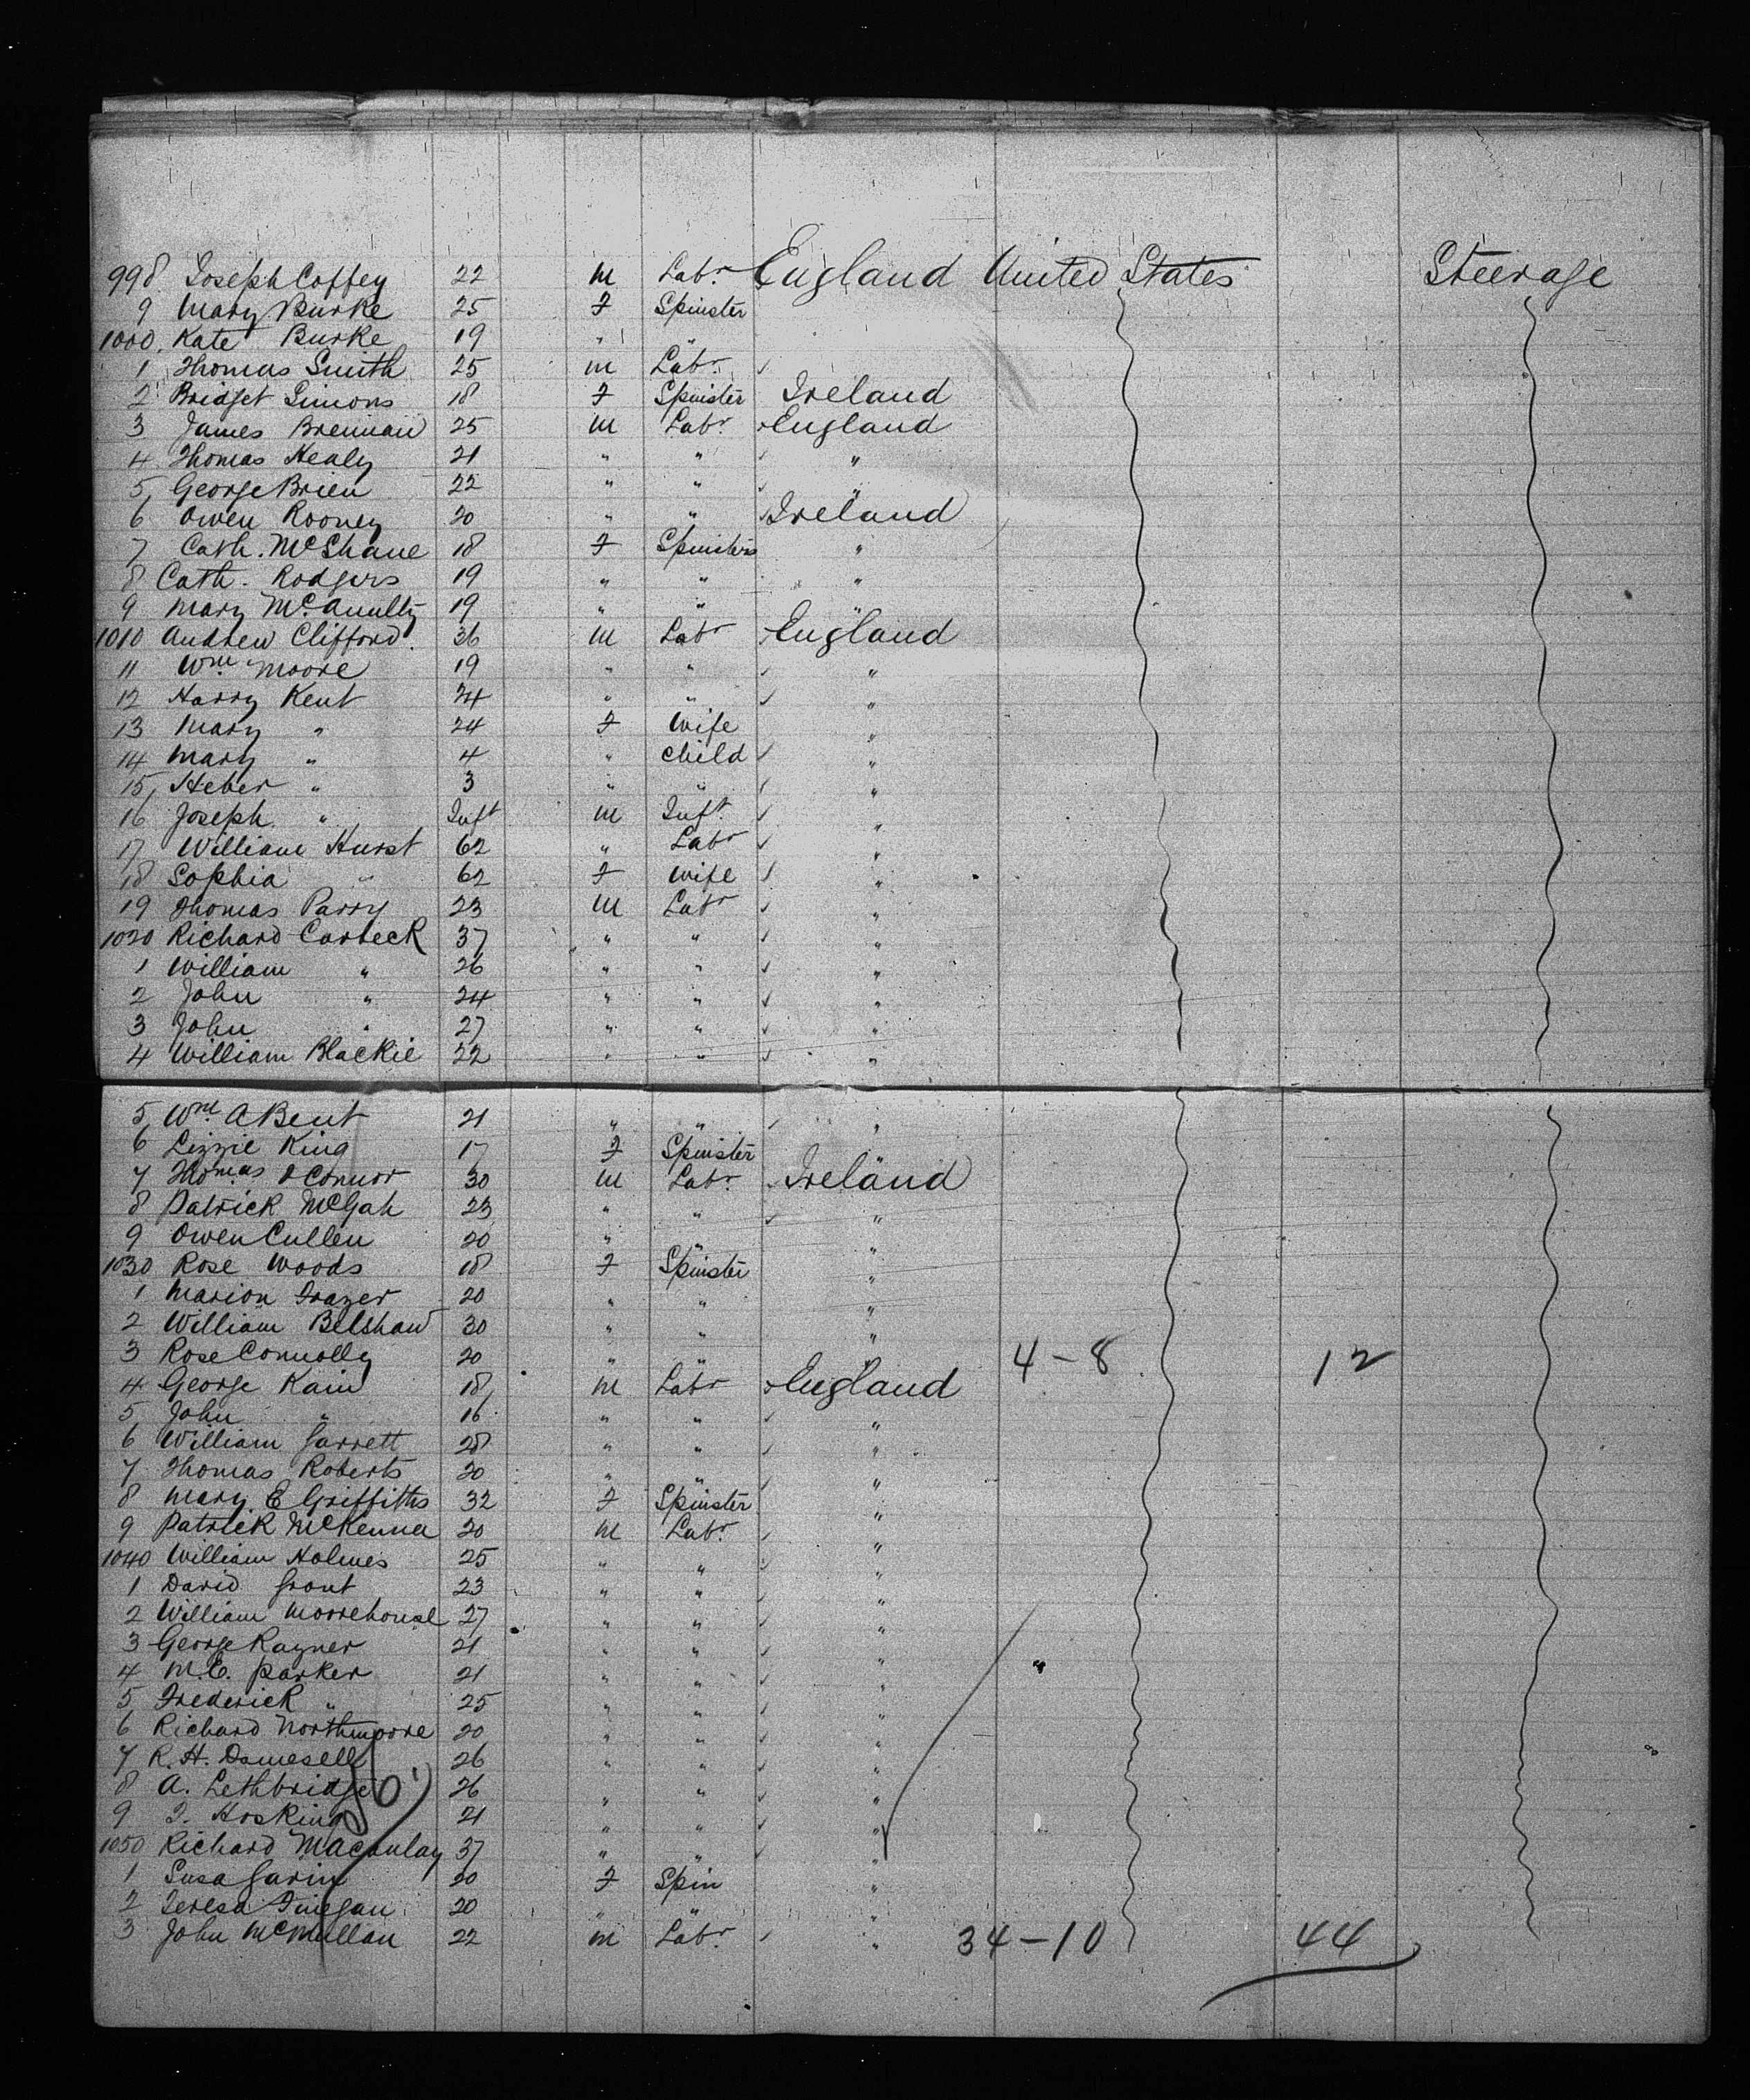 998 Joseph Coffey 22 M Labr England United States Steerage
9 Mary Burke 25 F Spinster
1000 Kate Burke 19 " "
1 Thomas Smith 25 M Labr
2 Bridget Simons 18 F Spinster Ireland
3 James Brennan 25 M Labr England
4 Thomas Healy 21 " " "
5 George Brien 22 " " "
6 Owen Rooney 20 " " Ireland
7 Cath. McShane 18 F Spinsters "
8 Cath. Rodgers 19 " " "
9 Mary McAnulty 19 " " "
1010 Andrew Clifford 36 M Labr England
11 Wm Moore 19 " " "
12 Harry Kent 24 " " "
13 Mary " 24 F Wife "
14 Mary " 4 " Child "
15 Heber " 3 " " "
16 Joseph " Inft M Inft "
17 William Hurst 62 " Labr "
18 Sophia " 62 F Wife "
19 Thomas Parry 23 M Labr "
1020 Richard Corbeck 37 " " "
1 William " 26 " " "
2 John " 24 " " "
3 John " 27 " " "
4 William Blackie 22 " " "
5 Wm A Bent 21 " " "
6 Lizzie King 17 F Spinster "
7 Thomas O Connor 30 M Labr Ireland
8 Patrick McGah 23 " " "
9 Owen Cullen 20 " " "
1030 Rose Woods 18 F Spinster "
1 Marion Frazer 20 " " "
2 William Belshaw 30 " " "
3 Rose Connolly 20 " " " 4-8 12
4 George Kain 18 M Labr England
5 John " 16 " " "
6 William Garrett 28 " " "
7 Thomas Roberts 20 " " "
8 Mary E Griffiths 32 F Spinster "
9 Patrick McKenna 20 M Labr "
1040 William Holmes 25 " " "
1 David Grout 23 " " "
2 William Moorehouse 27 " " "
3 George Rayner 21 " " "
4 M.E. Parker 21 " " "
5 Frederick " 25 " " "
6 Richard Northmoore 20 " " "
7 R. H. Damesell 26 " " "
8 A. Lethbridge 26 " " "
9 Hosking 21 " " "
1050 Richard Macaulay 37 " " "
1 Susa Garin 20 F Spin "
2 Teresa Finegan 20 " " "
3 John McMullan 22 M Labr " 34-10 44